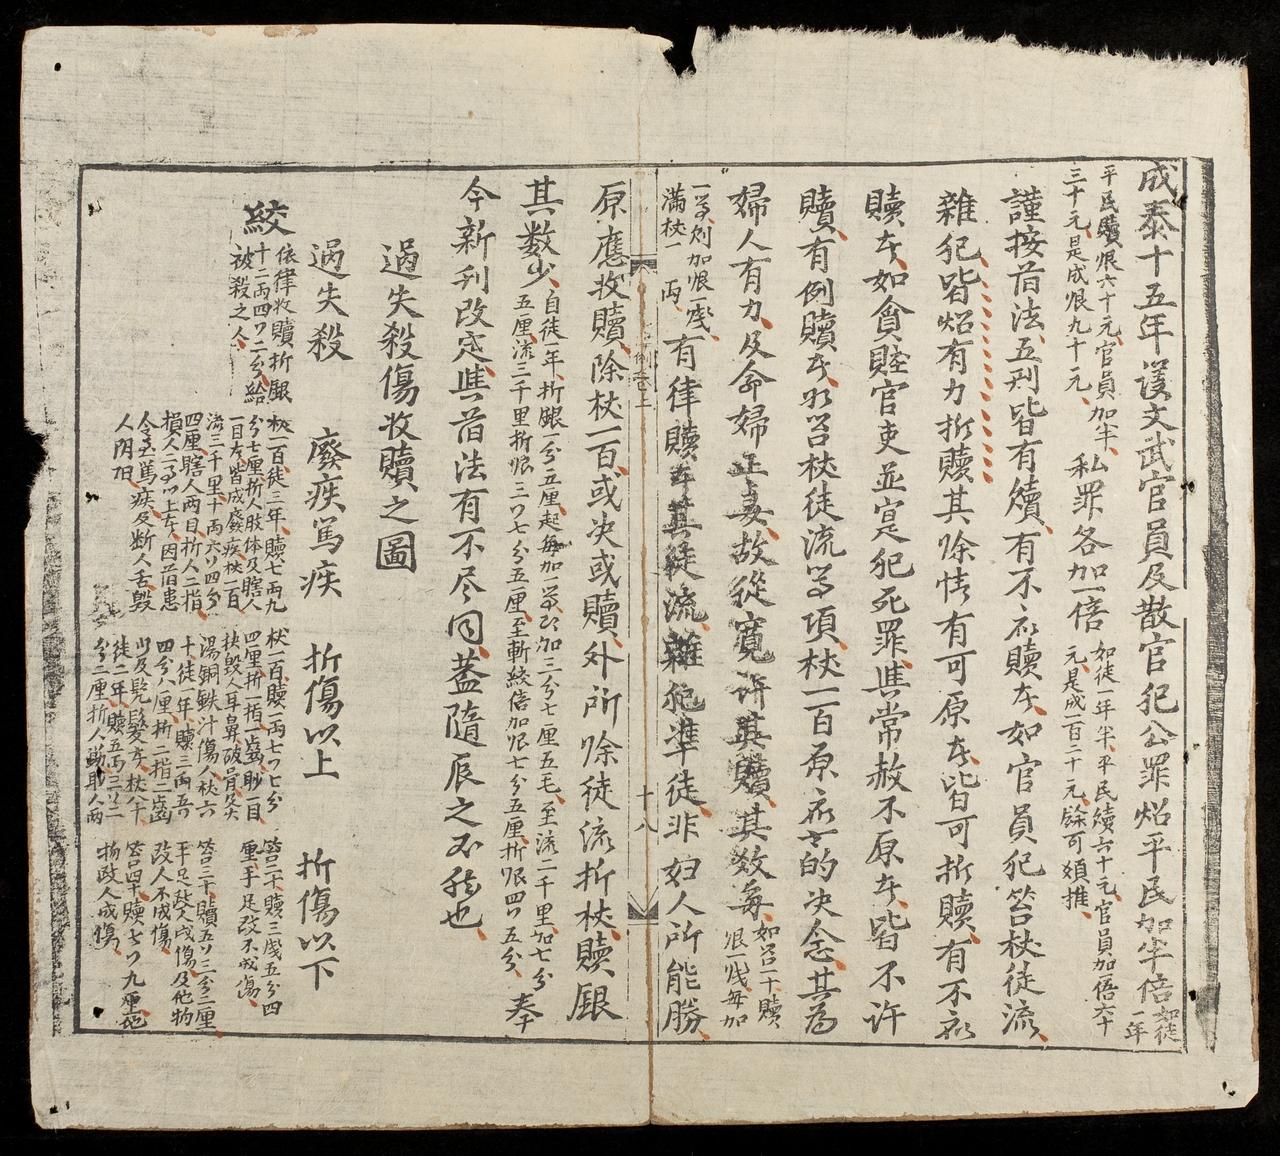 成泰十五年議文武官員及散官犯公罪炤平民加半倍如徒一年
平民贖銀六十元官員加半三十元是成銀九十元私罪各加一倍如徒一年半平民贖六十元官員加一倍六十元是成一百二十元餘可類推
謹按首法五刑皆有贖有不應贖者如官員犯笞杖徒流
雜犯皆炤有力折贖其餘情有可原者皆可折贖有不應
贖者如貪贓官吏並實犯死罪與常赦不原者皆不許
贖有例贖者如笞杖徒流等項杖一百原應的决念其為
婦人有力及命婦正妻故從寬許其贖其数每如笞一十贖銀一戋每加
一等則加銀一戋滿杖一両有律贖者其徒流雜犯準徒非妇人所能勝
十八
原應收贖除杖一百或决或贖外所餘徒流折杖贖銀
其数少自徒一年折銀一分五厘起每加一等加三分七厘五毛至流二千里加七分五厘流三千里折銀三分七分五厘至斬絞倍加銀七分五厘折銀四分五分奉
今新刋改定與首法有不尽同蓋隨辰之不移也
過失殺傷收贖之圖
過失殺　廢疾篤疾　折傷以上　折傷以下
絞依律收贖折銀十二両四分二分給被殺之人
杖一百徒三年贖七両九分七厘折人肢体及瞎人一目者皆成廢疾杖一百流三千里十両六分四分四厘瞎人両目折人二指損人二事以上者因旧患令至篤疾及断人舌毁人阴阳
杖一百贖一両七分七分四厘折一指一齒眇一目抉毁人耳鼻破骨及湯銅鉄汁傷人杖六十徒一年贖三両五分四分八厘折二指二齒以上及髠髮者杖八十徒二年贖五両三分二分二厘折人肋眇人両
笞二十贖三戋五分四厘手足殴不成傷
笞三十贖五分三分二厘手足殴人成傷及他物殴人不成傷
笞四十贖七分九厘他物殴人成傷